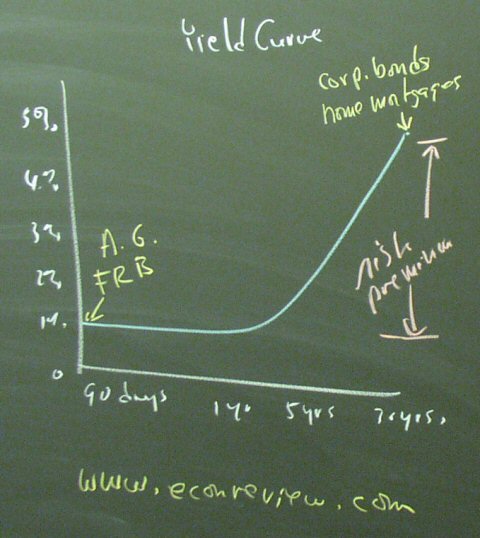 Yield Curve
corp. bonds
home mortgages
5%
4%
3%
2%
1%
0
A.G.
FRB
risk
premium
90 days 1 yr. 5 yrs 30 yrs.
www.econreview.com